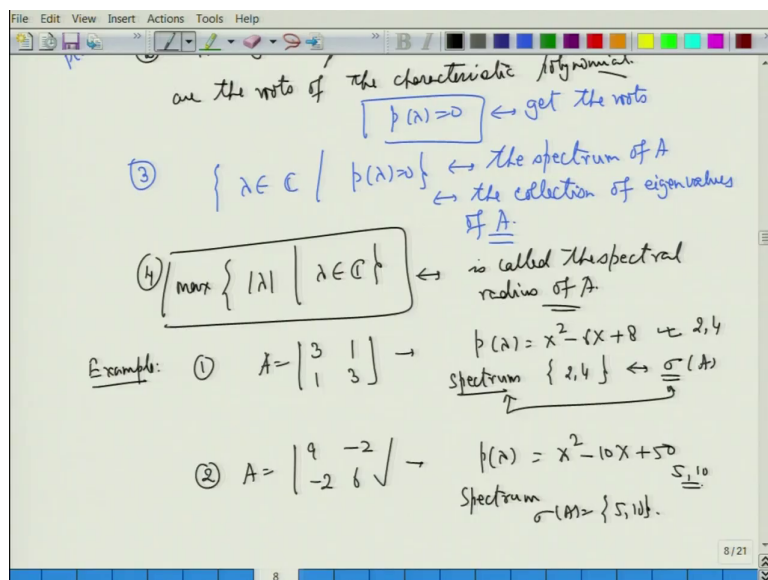 File Edit View Insert Actions Tools Help
are the roots of the characteristic polynomial.
p(λ)=0 ↔ get the roots
③ { λ∈ ℂ | p(λ)=0} ↔ the spectrum of A
↔ the collection of eigenvalues
of A.
④ max { |λ| | λ∈ℂ } ↔ is called the spectral
radius of A.
Example: ① A = [3 1 → p(λ) = x²-6x+8 2,4
1 3] spectrum { 2,4 } ↔ σ(A)
② A = [9 -2 → p(λ) = x²-10x+50
-2 6] 5,10
Spectrum σ(A)= {5,10}.
8/21
8